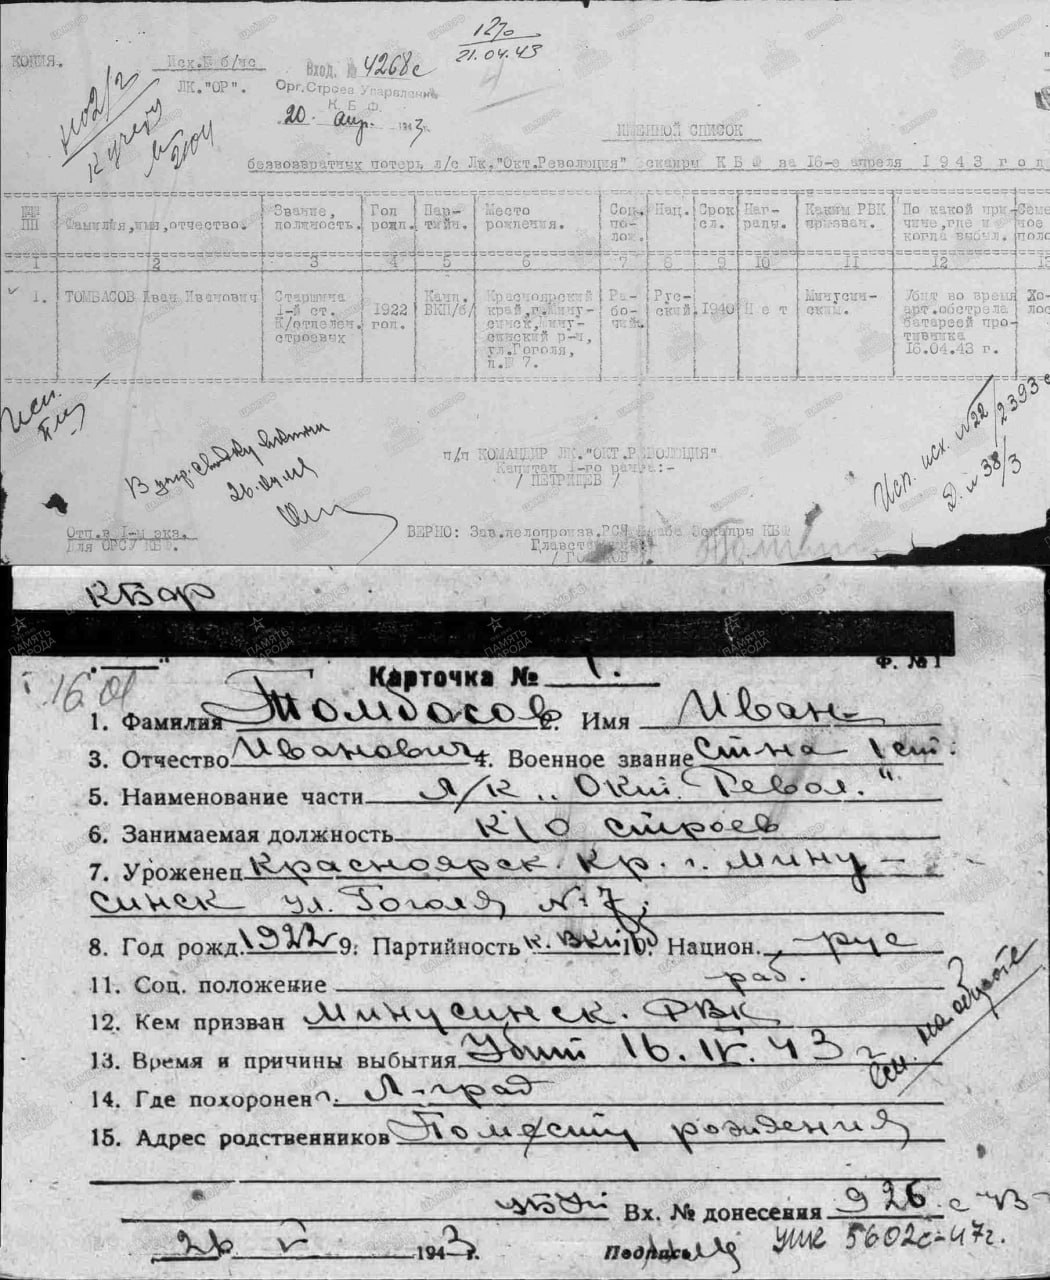 1270
21.04.43
КОПИЯ.
Исх.№ б/чс
ЛК."ОР".
Вход. № 4268с
Орг.Строев Управление
К.Б.Ф.
20 апр. 1943г.
ИМЕННОЙ СПИСОК
безвозвратных потерь л/с Лк."Окт.Революция" эскадры К Б Ф на 16-е апреля 1 9 4 3 г о д
№№ ПП
Фамилия,имя,отчество.
Звание, должность.
Год рожд.
Пар-тийн.
Место рождения.
Соц. по-лож.
Нац.
Срок сл.
Наг-рады.
Каким РВК призван.
По какой при-чине,где и когда выбыл.
1 2 3 4 5 6 7 8 9 10 11 12 13
1.
ТОМБАСОВ Иван Иванович
Старшина 1-й ст. К/отделен. строевых
1922 год.
Канд. ВКП/б/
Красноярский край,г.Мину-синск,Мину-синский р-н, ул.Гоголя, д.№ 7.
Ра-бо-чий.
Рус-ский.
1940
Н е т
Минусин-ским.
Убит во время арт.обстрела батареей про-тивника 16.04.43 г.
Хо-лос
п/п КОМАНДИР ЛК."ОКТ.РЕВОЛЮЦИЯ"
Капитан 1-го ранга:-
/ ПЕТРИЩЕВ /
Исп. исх. №22/2393с
Д. № 38/3
Отп.в 1-м экз.
Для ОРСУ КБФ.
ВЕРНО: Зав.делопроизв.РСЧ Штаба Эскадры КБФ
Главстаршина
КБФ
ПАМЯТЬ НАРОДА
16.01
Ф. № 1
Карточка № 1.
1. Фамилия Томбасов 2. Имя Иван
3. Отчество Иванович 4. Военное звание ст-на 1 ст.
5. Наименование части Л/К „Окт. Револ."
6. Занимаемая должность К/О строев
7. Уроженец Красноярск. кр. г. Мину-
синск ул. Гоголя №7;
8. Год рожд. 1922 9. Партийность к. ВКП/б 10. Национ. рус
11. Соц. положение раб.
12. Кем призван Минусинск. РВК
13. Время и причины выбытия Убит 16.IV.43 г
См. на обороте
14. Где похоронен г. Л-град
15. Адрес родственников По месту рождения
Вх. № донесения 926 с 43
26 V 1943 г. Подпись
УПК 5602с-47г.